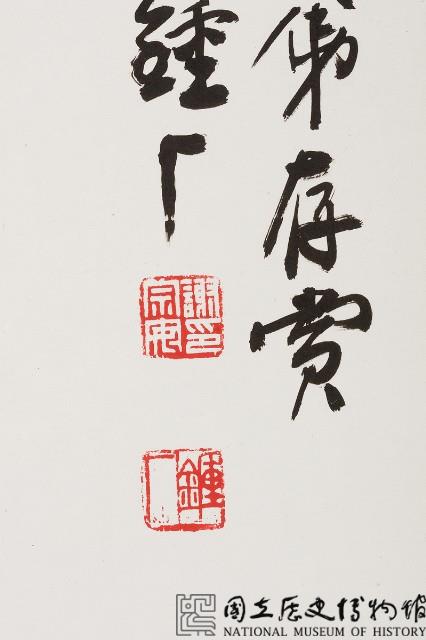 存賞
鍾厂
謝印宗安
鍾厂
國立歷史博物館
NATIONAL MUSEUM OF HISTORY